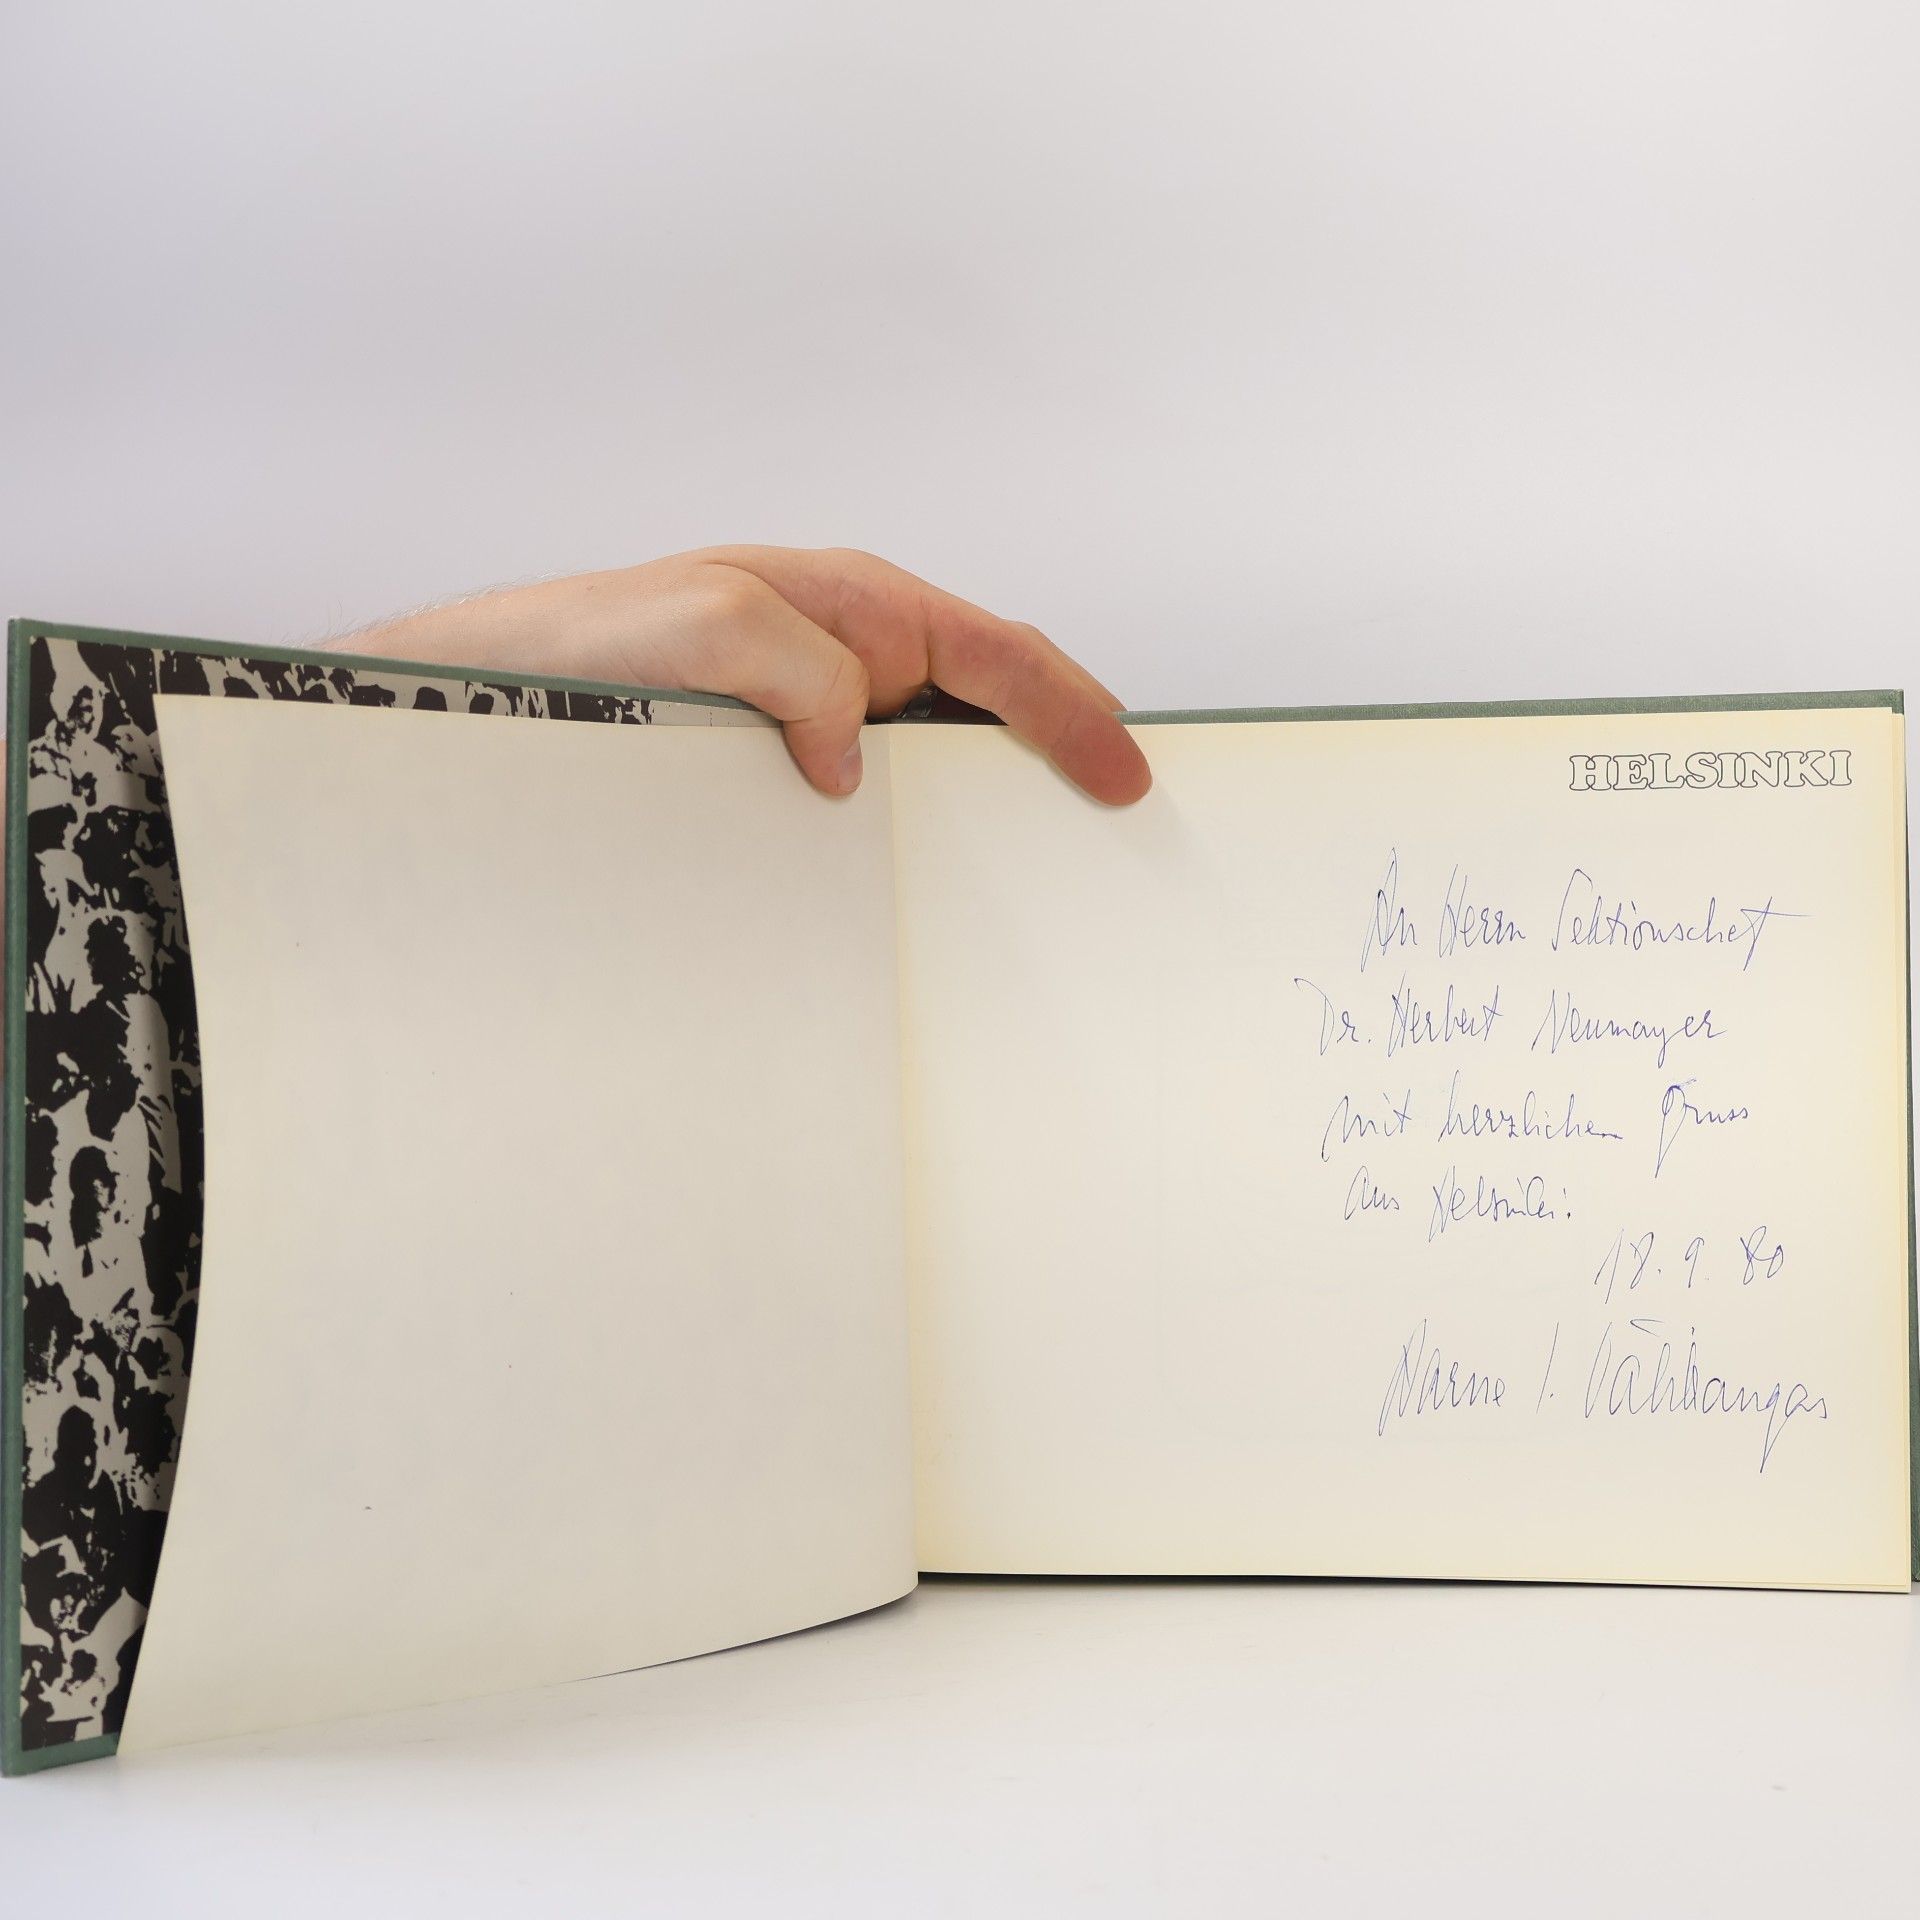 HELSINKI
An Herrn Sektionschef
Dr. Herbert Neumayer
mit herzlichem Gruss
aus Helsinki:
18. 9. 80